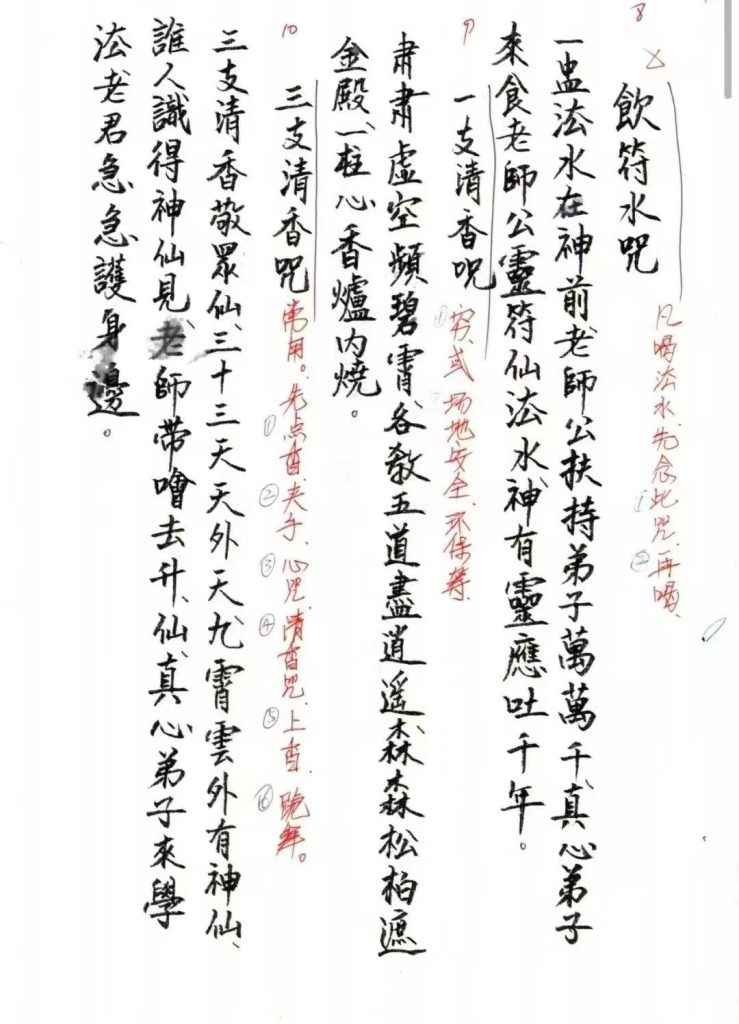 8
飲符水咒
凡喝法水先念此咒、再喝、
① ②
一盅法水在神前、老師公扶持弟子萬萬千、真心弟子
來食老師公靈符仙法水、神有靈應吐千年。
9
一支清香咒
① 或 场地安全、环保等
肅肅虛空頻碧霄、各教五道盡逍遥、森森松柏遮
金殿、一柱心香爐内燒。
10
三支清香咒
常用。先点香、夹手、心咒、清香咒、上香、跪拜。
① ② ③ ④ ⑤ ⑥
三支清香敬眾仙、三十三天天外天、九霄雲外有神仙、
誰人識得神仙見、老師带噲去升、仙、真心弟子來學
法、老君急急護身邊。